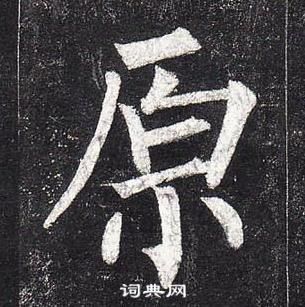 原
词典网